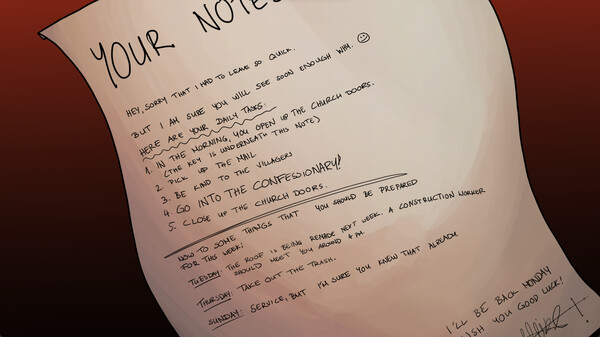 YOUR NOTES
HEY, SORRY THAT I HAD TO LEAVE SO QUICK.
BUT I AM SURE YOU WILL SEE SOON ENOUGH WHY. ☺
HERE ARE YOUR DAILY TASKS:
1. IN THE MORNING, YOU OPEN UP THE CHURCH DOORS.
(THE KEY IS UNDERNEATH THIS NOTE)
2. PICK UP THE MAIL
3. BE KIND TO THE VILLAGERS
4. GO INTO THE CONFESSIONARY!
5. CLOSE UP THE CHURCH DOORS.
NOW TO SOME THINGS THAT YOU SHOULD BE PREPARED
FOR THIS WEEK:
TUESDAY: THE ROOF IS BEING REMADE NEXT WEEK. A CONSTRUCTION WORKER
SHOULD MEET YOU AROUND 4 PM.
THURSDAY: TAKE OUT THE TRASH.
SUNDAY: SERVICE, BUT I'M SURE YOU KNEW THAT ALREADY
I'LL BE BACK MONDAY
WISH YOU GOOD LUCK!